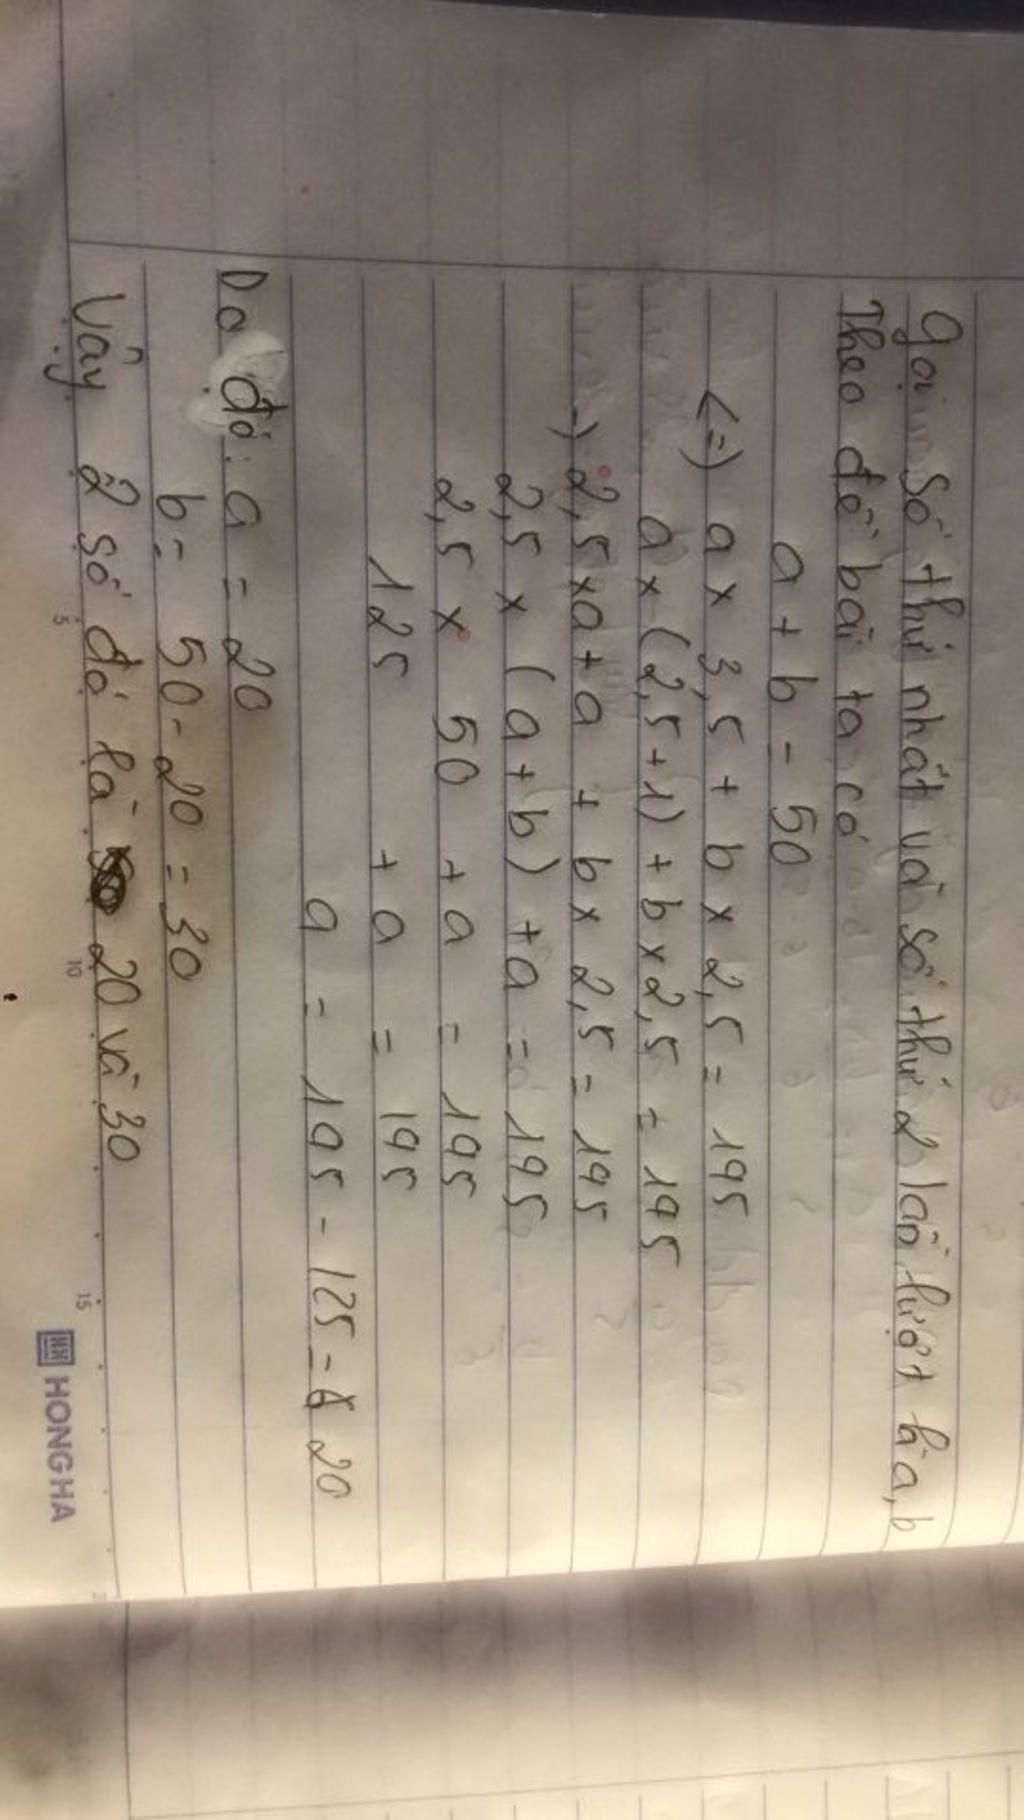 Gọi số thứ nhất và số thứ 2 lần lượt là a, b
Theo đề bài ta có
a + b = 50
<=> a x 3,5 + b x 2,5 = 195
a x (2,5 + 1) + b x 2,5 = 195
-> 2,5 x a + a + b x 2,5 = 195
2,5 x (a + b) + a = 195
2,5 x 50 + a = 195
125 + a = 195
a = 195 - 125 = 20
Do đó: a = 20
b = 50 - 20 = 30
Vây 2 số đó là 20 và 30
5 10 15
HONG HA